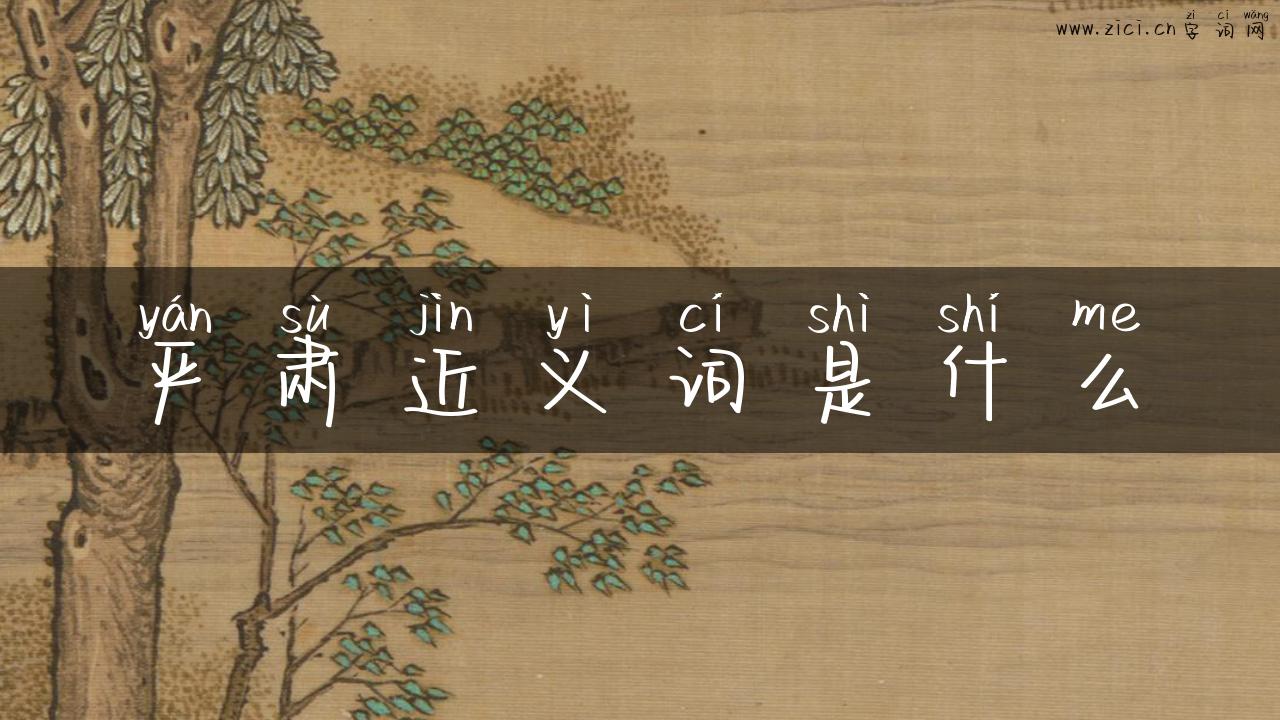 zì cí wǎng
www.zici.cn 字词网
yán sù jìn yì cí shì shí me
严肃近义词是什么